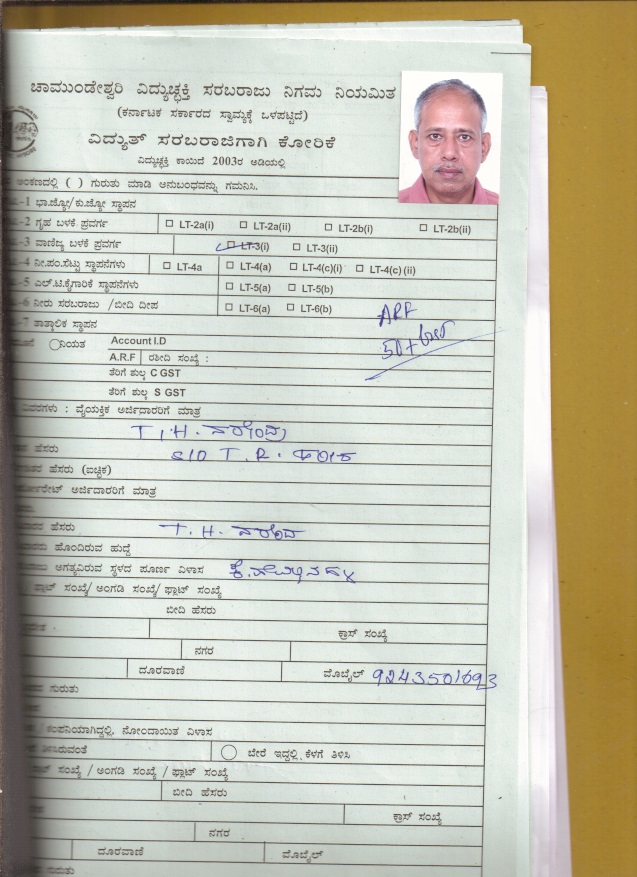 ಚಾಮುಂಡೇಶ್ವರಿ ವಿದ್ಯುಚ್ಛಕ್ತಿ ಸರಬರಾಜು ನಿಗಮ ನಿಯಮಿತ
(ಕರ್ನಾಟಕ ಸರ್ಕಾರದ ಸ್ವಾಮ್ಯಕ್ಕೆ ಒಳಪಟ್ಟಿದೆ)
ವಿದ್ಯುತ್ ಸರಬರಾಜಿಗಾಗಿ ಕೋರಿಕೆ
ವಿದ್ಯುಚ್ಛಕ್ತಿ ಕಾಯಿದೆ 2003ರ ಅಡಿಯಲ್ಲಿ
ಅಂಕಣದಲ್ಲಿ ( ) ಗುರುತು ಮಾಡಿ ಅನುಬಂಧವನ್ನು ಗಮನಿಸಿ.
-1 ಭಾ.ಜ್ಯೋ/ಕು.ಜ್ಯೋ ಸ್ಥಾಪನ
-2 ಗೃಹ ಬಳಕೆ ಪ್ರವರ್ಗ LT-2a(i) LT-2a(ii) LT-2b(i) LT-2b(ii)
-3 ವಾಣಿಜ್ಯ ಬಳಕೆ ಪ್ರವರ್ಗ LT-3(i) LT-3(ii)
-4 ನೀ.ಪಂ.ಸೆಟ್ಟು ಸ್ಥಾಪನೆಗಳು LT-4a LT-4(a) LT-4(c)(i) LT-4(c)(ii)
-5 ಎಲ್.ಟಿ.ಕೈಗಾರಿಕೆ ಸ್ಥಾಪನೆಗಳು LT-5(a) LT-5(b)
-6 ನೀರು ಸರಬರಾಜು /ಬೀದಿ ದೀಪ LT-6(a) LT-6(b)
ARF
-7 ತಾತ್ಕಾಲಿಕ ಸ್ಥಾಪನ
50+
ನಿಯತ Account I.D
A.R.F ರಶೀದಿ ಸಂಖ್ಯೆ :
ತೆರಿಗೆ ಶುಲ್ಕ C GST
ತೆರಿಗೆ ಶುಲ್ಕ S GST
ವಿವರಗಳು : ವೈಯಕ್ತಿಕ ಅರ್ಜಿದಾರರಿಗೆ ಮಾತ್ರ
T.H.
ಹೆಸರು S/O T.R.
ಹೆಸರು (ಐಚ್ಛಿಕ)
ಅರ್ಜಿದಾರರಿಗೆ ಮಾತ್ರ
ಹೆಸರು T.H.
ಹೊಂದಿರುವ ಹುದ್ದೆ
ಅಗತ್ಯವಿರುವ ಸ್ಥಳದ ಪೂರ್ಣ ವಿಳಾಸ
ಪ್ಲಾಟ್ ಸಂಖ್ಯೆ/ ಅಂಗಡಿ ಸಂಖ್ಯೆ/ ಫ್ಲಾಟ್ ಸಂಖ್ಯೆ
ಬೀದಿ ಹೆಸರು
ಕ್ರಾಸ್ ಸಂಖ್ಯೆ
ನಗರ
ದೂರವಾಣಿ ಮೊಬೈಲ್ 9243501693
ಗುರುತು
ಕಂಪನಿಯಾಗಿದ್ದಲ್ಲಿ, ನೋಂದಾಯಿತ ವಿಳಾಸ
ಬೇರೆ ಇದ್ದಲ್ಲಿ ಕೆಳಗೆ ತಿಳಿಸಿ
ಪ್ಲಾಟ್ ಸಂಖ್ಯೆ / ಅಂಗಡಿ ಸಂಖ್ಯೆ / ಫ್ಲಾಟ್ ಸಂಖ್ಯೆ
ಬೀದಿ ಹೆಸರು
ಕ್ರಾಸ್ ಸಂಖ್ಯೆ
ನಗರ
ದೂರವಾಣಿ ಮೊಬೈಲ್
ಗುರುತು